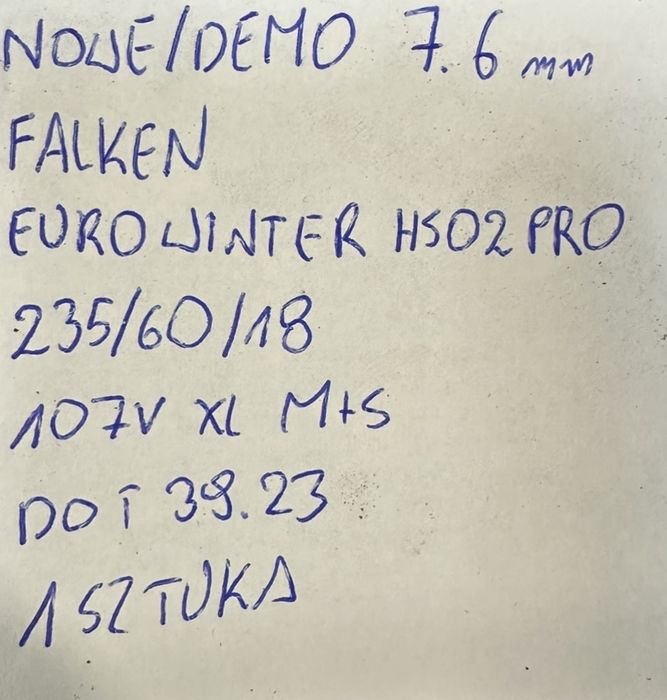 NOWE/DEMO 7.6 mm
FALKEN
EUROWINTER HS02 PRO
235/60/18
107V XL M+S
DOT 39.23
1 SZTUKA